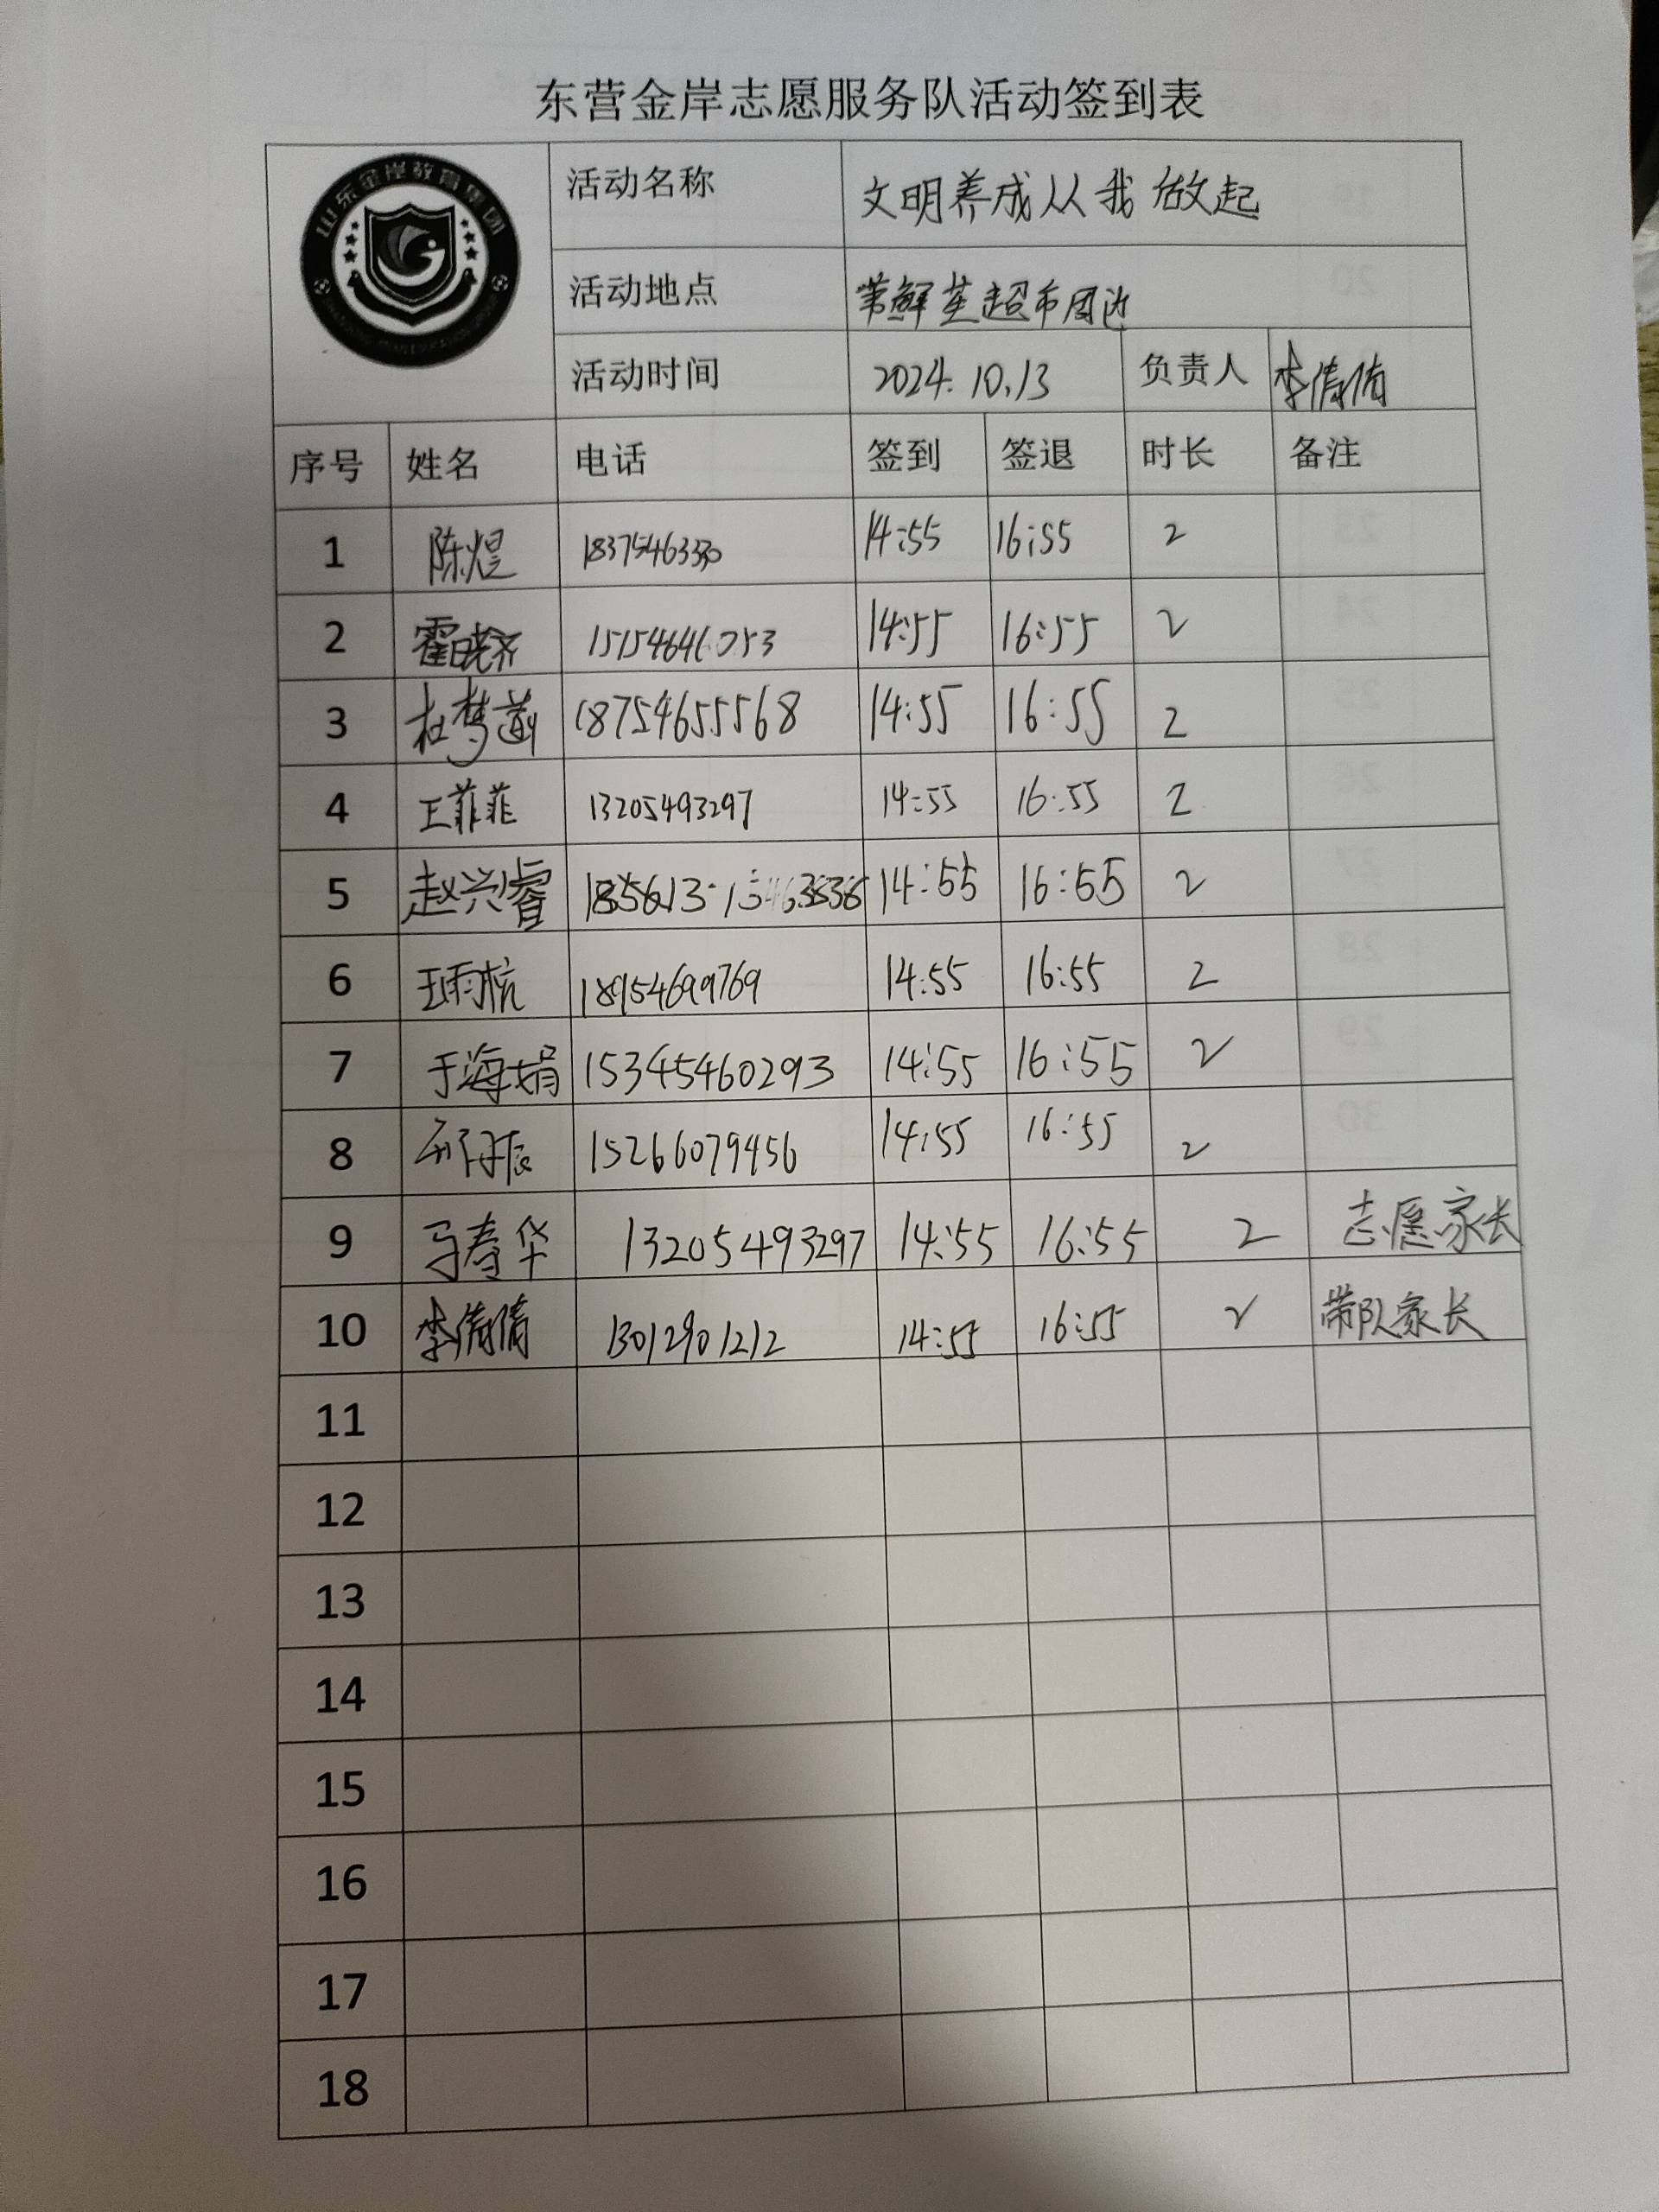 东营金岸志愿服务队活动签到表
山东金岸教育集团
活动名称 文明养成从我做起
活动地点 超市周边
活动时间 2024.10.13 负责人 李倩倩
序号 姓名 电话 签到 签退 时长 备注
1 陈煜 14:55 16:55 2
2 霍晓齐 14:55 16:55 2
3 杜梦 18754655568 14:55 16:55 2
4 王菲菲 13205493297 14:55 16:55 2
5 赵兴睿 14:55 16:55 2
6 王雨杭 18954699769 14:55 16:55 2
7 于海娟 15345460293 14:55 16:55 2
8 15266079456 14:55 16:55 2
9 马春华 13205493297 14:55 16:55 2 志愿家长
10 李倩倩 13012901212 14:55 16:55 2 带队家长
11
12
13
14
15
16
17
18